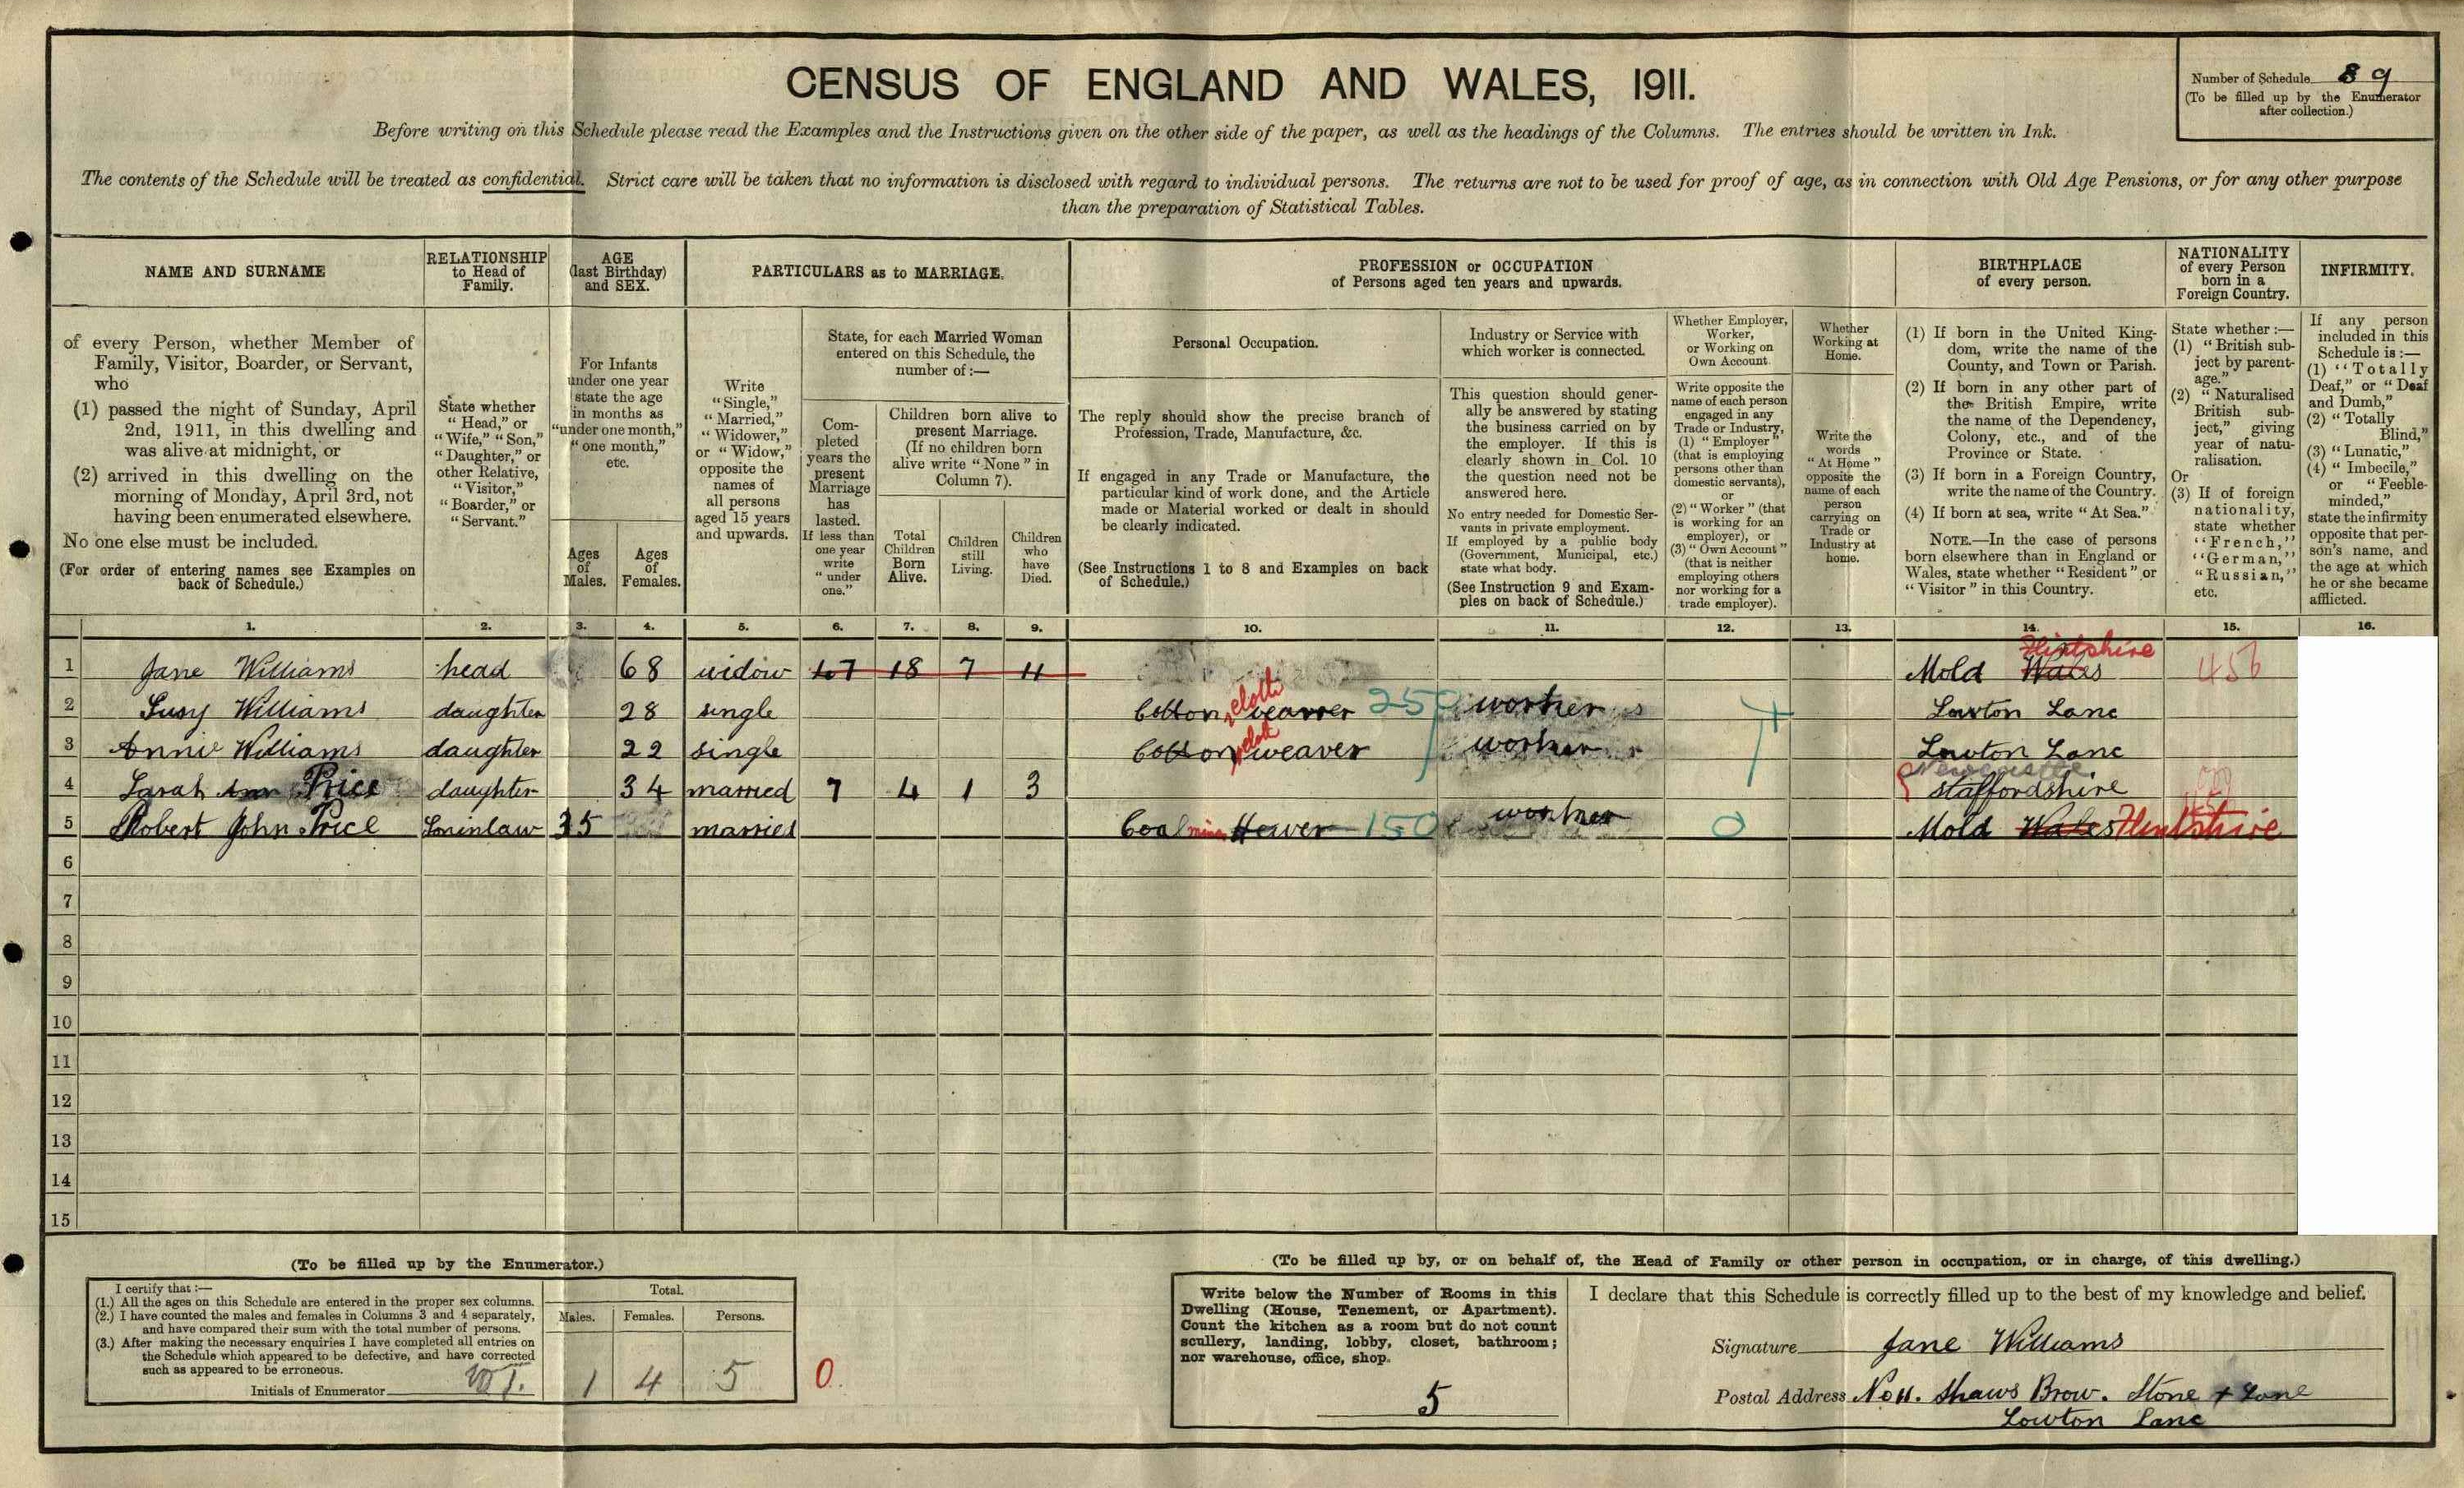 CENSUS OF ENGLAND AND WALES, 1911.
Number of Schedule 89
(To be filled up by the Enumerator
after collection.)
Before writing on this Schedule please read the Examples and the Instructions given on the other side of the paper, as well as the headings of the Columns. The entries should be written in Ink.
The contents of the Schedule will be treated as confidential. Strict care will be taken that no information is disclosed with regard to individual persons. The returns are not to be used for proof of age, as in connection with Old Age Pensions, or for any other purpose
than the preparation of Statistical Tables.
NAME AND SURNAME
of every Person, whether Member of
Family, Visitor, Boarder, or Servant,
who
(1) passed the night of Sunday, April
2nd, 1911, in this dwelling and
was alive at midnight, or
(2) arrived in this dwelling on the
morning of Monday, April 3rd, not
having been enumerated elsewhere.
No one else must be included.
(For order of entering names see Examples on
back of Schedule.)
RELATIONSHIP
to Head of
Family.
State whether
"Head," or
"Wife," "Son,"
"Daughter," or
other Relative,
"Visitor,"
"Boarder," or
"Servant."
AGE
(last Birthday)
and SEX.
For Infants
under one year
state the age
in months as
"under one month,"
"one month,"
etc.
Ages
of
Males.
Ages
of
Females.
PARTICULARS as to MARRIAGE.
Write
"Single,"
"Married,"
"Widower,"
or "Widow,"
opposite the
names of
all persons
aged 15 years
and upwards.
State, for each Married Woman
entered on this Schedule, the
number of:—
Com-
pleted
years the
present
Marriage
has
lasted.
If less than
one year
write
"under
one."
Children born alive to
present Marriage.
(If no children born
alive write "None" in
Column 7).
Total
Children
Born
Alive.
Children
still
Living.
Children
who
have
Died.
PROFESSION or OCCUPATION
of Persons aged ten years and upwards.
Personal Occupation.
The reply should show the precise branch of
Profession, Trade, Manufacture, &c.
If engaged in any Trade or Manufacture, the
particular kind of work done, and the Article
made or Material worked or dealt in should
be clearly indicated.
(See Instructions 1 to 8 and Examples on back
of Schedule.)
Industry or Service with
which worker is connected.
This question should gener-
ally be answered by stating
the business carried on by
the employer. If this is
clearly shown in Col. 10
the question need not be
answered here.
No entry needed for Domestic Ser-
vants in private employment.
If employed by a public body
(Government, Municipal, etc.)
state what body.
(See Instruction 9 and Exam-
ples on back of Schedule.)
Whether Employer,
Worker,
or Working on
Own Account.
Write opposite the
name of each person
engaged in any
Trade or Industry,
(1) "Employer"
(that is employing
persons other than
domestic servants),
or
(2) "Worker" (that
is working for an
employer), or
(3) "Own Account"
(that is neither
employing others
nor working for a
trade employer).
Whether
Working at
Home.
Write the
words
"At Home"
opposite the
name of each
person
carrying on
Trade or
Industry at
home.
BIRTHPLACE
of every person.
(1) If born in the United King-
dom, write the name of the
County, and Town or Parish.
(2) If born in any other part of
the British Empire, write
the name of the Dependency,
Colony, etc., and of the
Province or State.
(3) If born in a Foreign Country,
write the name of the Country.
(4) If born at sea, write "At Sea."
NOTE.—In the case of persons
born elsewhere than in England or
Wales, state whether "Resident" or
"Visitor" in this Country.
NATIONALITY
of every Person
born in a
Foreign Country.
State whether:—
(1) "British sub-
ject by parent-
age."
(2) "Naturalised
British sub-
ject," giving
year of natu-
ralisation.
Or
(3) If of foreign
nationality,
state whether
"French,"
"German,"
"Russian,"
etc.
INFIRMITY.
If any person
included in this
Schedule is:—
(1) "Totally
Deaf," or "Deaf
and Dumb,"
(2) "Totally
Blind,"
(3) "Lunatic,"
(4) "Imbecile,"
or "Feeble-
minded,"
state the infirmity
opposite that per-
son's name, and
the age at which
he or she became
afflicted.
1. 2. 3. 4. 5. 6. 7. 8. 9. 10. 11. 12. 13. 14. 15. 16.
Flintshire
1 Jane Williams head 68 widow 18 7 11 Mold Wales 456
cloth
2 Lucy Williams daughter 28 single Cotton weaver 250 worker Lowton Lane
cloth
3 Annie Williams daughter 22 single Cotton weaver worker Lowton Lane
Newcastle
4 Sarah Ann Price daughter 34 married 7 4 1 3 Staffordshire
5 Robert John Price Soninlaw 35 married Coal mine Hewer 150 worker 0 Mold Wales Flintshire
6
7
8
9
10
11
12
13
14
15
(To be filled up by the Enumerator.)
I certify that:—
(1.) All the ages on this Schedule are entered in the proper sex columns.
(2.) I have counted the males and females in Columns 3 and 4 separately,
and have compared their sum with the total number of persons.
(3.) After making the necessary enquiries I have completed all entries on
the Schedule which appeared to be defective, and have corrected
such as appeared to be erroneous.
Initials of Enumerator
Total.
Males. Females. Persons.
1 4 5 0.
(To be filled up by, or on behalf of, the Head of Family or other person in occupation, or in charge, of this dwelling.)
Write below the Number of Rooms in this
Dwelling (House, Tenement, or Apartment).
Count the kitchen as a room but do not count
scullery, landing, lobby, closet, bathroom;
nor warehouse, office, shop.
5
I declare that this Schedule is correctly filled up to the best of my knowledge and belief.
Signature Jane Williams
Postal Address No 11. Shaws Brow. Stone X Lane
Lowton Lane